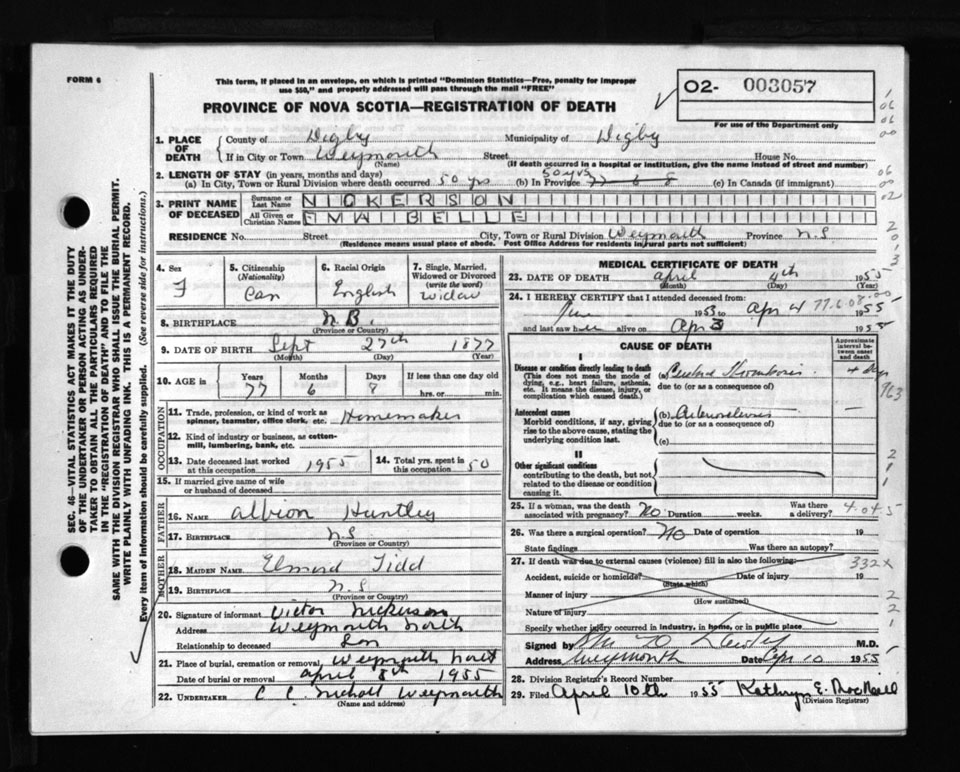 FORM 6
This form, if placed in an envelope, on which is printed "Dominion Statistics—Free, penalty for improper
use $50," and properly addressed will pass through the mail "FREE"
02- 003057
For use of the Department only
PROVINCE OF NOVA SCOTIA—REGISTRATION OF DEATH
SEC. 46—VITAL STATISTICS ACT MAKES IT THE DUTY
OF THE UNDERTAKER OR PERSON ACTING AS UNDER-
TAKER TO OBTAIN ALL THE PARTICULARS REQUIRED
IN THE "REGISTRATION OF DEATH" AND TO FILE THE
SAME WITH THE DIVISION REGISTRAR WHO SHALL ISSUE THE BURIAL PERMIT.
WRITE PLAINLY WITH UNFADING INK. THIS IS A PERMANENT RECORD.
Every item of information should be carefully supplied. (See reverse side for instructions.)
1. PLACE OF DEATH County of Digby Municipality of Digby
If in City or Town Weymouth Street House No.
(Name) (If death occurred in a hospital or institution, give the name instead of street and number)
2. LENGTH OF STAY (in years, months and days)
(a) In City, Town or Rural Division where death occurred 50 yrs (b) In Province 50 yrs 77 6 8 (c) In Canada (if immigrant)
3. PRINT NAME OF DECEASED Surname or Last Name NICKERSON
All Given or Christian Names EMA BELLE
RESIDENCE No. Street City, Town or Rural Division Weymouth Province N.S
(Residence means usual place of abode. Post Office Address for residents in rural parts not sufficient)
4. Sex F
5. Citizenship (Nationality) Can
6. Racial Origin English
7. Single, Married, Widowed or Divorced (write the word) Widow
8. BIRTHPLACE N.B.
(Province or Country)
9. DATE OF BIRTH Sept 27th 1877
(Month) (Day) (Year)
10. AGE in Years 77 Months 6 Days 8 If less than one day old hrs. or min.
OCCUPATION
11. Trade, profession, or kind of work as spinner, teamster, office clerk, etc. Homemaker
12. Kind of industry or business, as cotton-mill, lumbering, bank, etc.
13. Date deceased last worked at this occupation 1955
14. Total yrs. spent in this occupation 50
15. If married give name of wife or husband of deceased
FATHER
16. NAME Albion Huntley
17. BIRTHPLACE N.S
(Province or Country)
MOTHER
18. MAIDEN NAME Tidd
19. BIRTHPLACE N.S
(Province or Country)
20. Signature of informant Victor Nickerson
Address Weymouth North
Relationship to deceased Son
21. Place of burial, cremation or removal Weymouth North
Date of burial or removal April 8th 1955
22. UNDERTAKER C C Nicholl Weymouth
(Name and address)
MEDICAL CERTIFICATE OF DEATH
23. DATE OF DEATH April 4th 1955
(Month) (Day)
24. I HEREBY CERTIFY that I attended deceased from:
June 1953 to Apr 4 1955
and last saw her alive on Apr 3 1955
CAUSE OF DEATH
Approximate interval between onset and death
I
Disease or condition directly leading to death
(This does not mean the mode of dying, e.g., heart failure, asthenia, etc. It means the disease, injury, or complication which caused death.)
(a) Cerebral Thrombosis 4 days
due to (or as a consequence of)
Antecedent causes
Morbid conditions, if any, giving rise to the above cause, stating the underlying condition last.
(b) Arteriosclerosis
due to (or as a consequence of)
(c)
II
Other significant conditions
contributing to the death, but not related to the disease or condition causing it.
25. If a woman, was the death associated with pregnancy? No Duration weeks. Was there a delivery?
26. Was there a surgical operation? No Date of operation 19
State findings Was there an autopsy?
27. If death was due to external causes (violence) fill in also the following:
332X
Accident, suicide or homicide? Date of injury 19
(State which)
Manner of injury
(How sustained)
Nature of injury
Specify whether injury occurred in industry, in home, or in public place
Signed by M.D.
Address Weymouth Date Apr 10 1955
28. Division Registrar's Record Number
29. Filed April 10th 1955 Kathryn E. MacNeill
(Division Registrar)